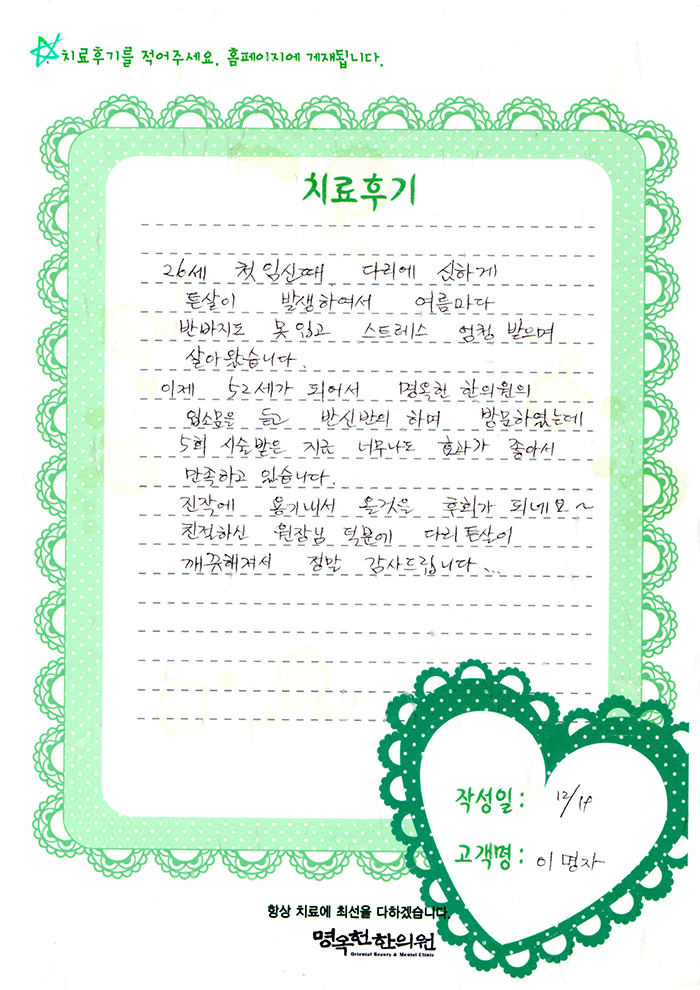 치료후기를 적어주세요. 홈페이지에 게재됩니다.
치료후기
26세 첫 임신때 다리에 심하게
튼살이 발생하여서 여름마다
반바지도 못 입고 스트레스 엄청 받으며
살아왔습니다.
이제 52세가 되어서 명옥헌 한의원의
입소문을 듣고 반신반의 하며 방문하였는데
5회 시술받은 지금 너무나도 효과가 좋아서
만족하고 있습니다.
진작에 용기내서 올것을 후회가 되네요~
친절하신 원장님 덕분에 다리 튼살이
깨끗해져서 정말 감사드립니다...
작성일: 12/19
고객명: 이명자
항상 치료에 최선을 다하겠습니다.
명옥헌한의원
Oriental Beauty & Mental Clinic